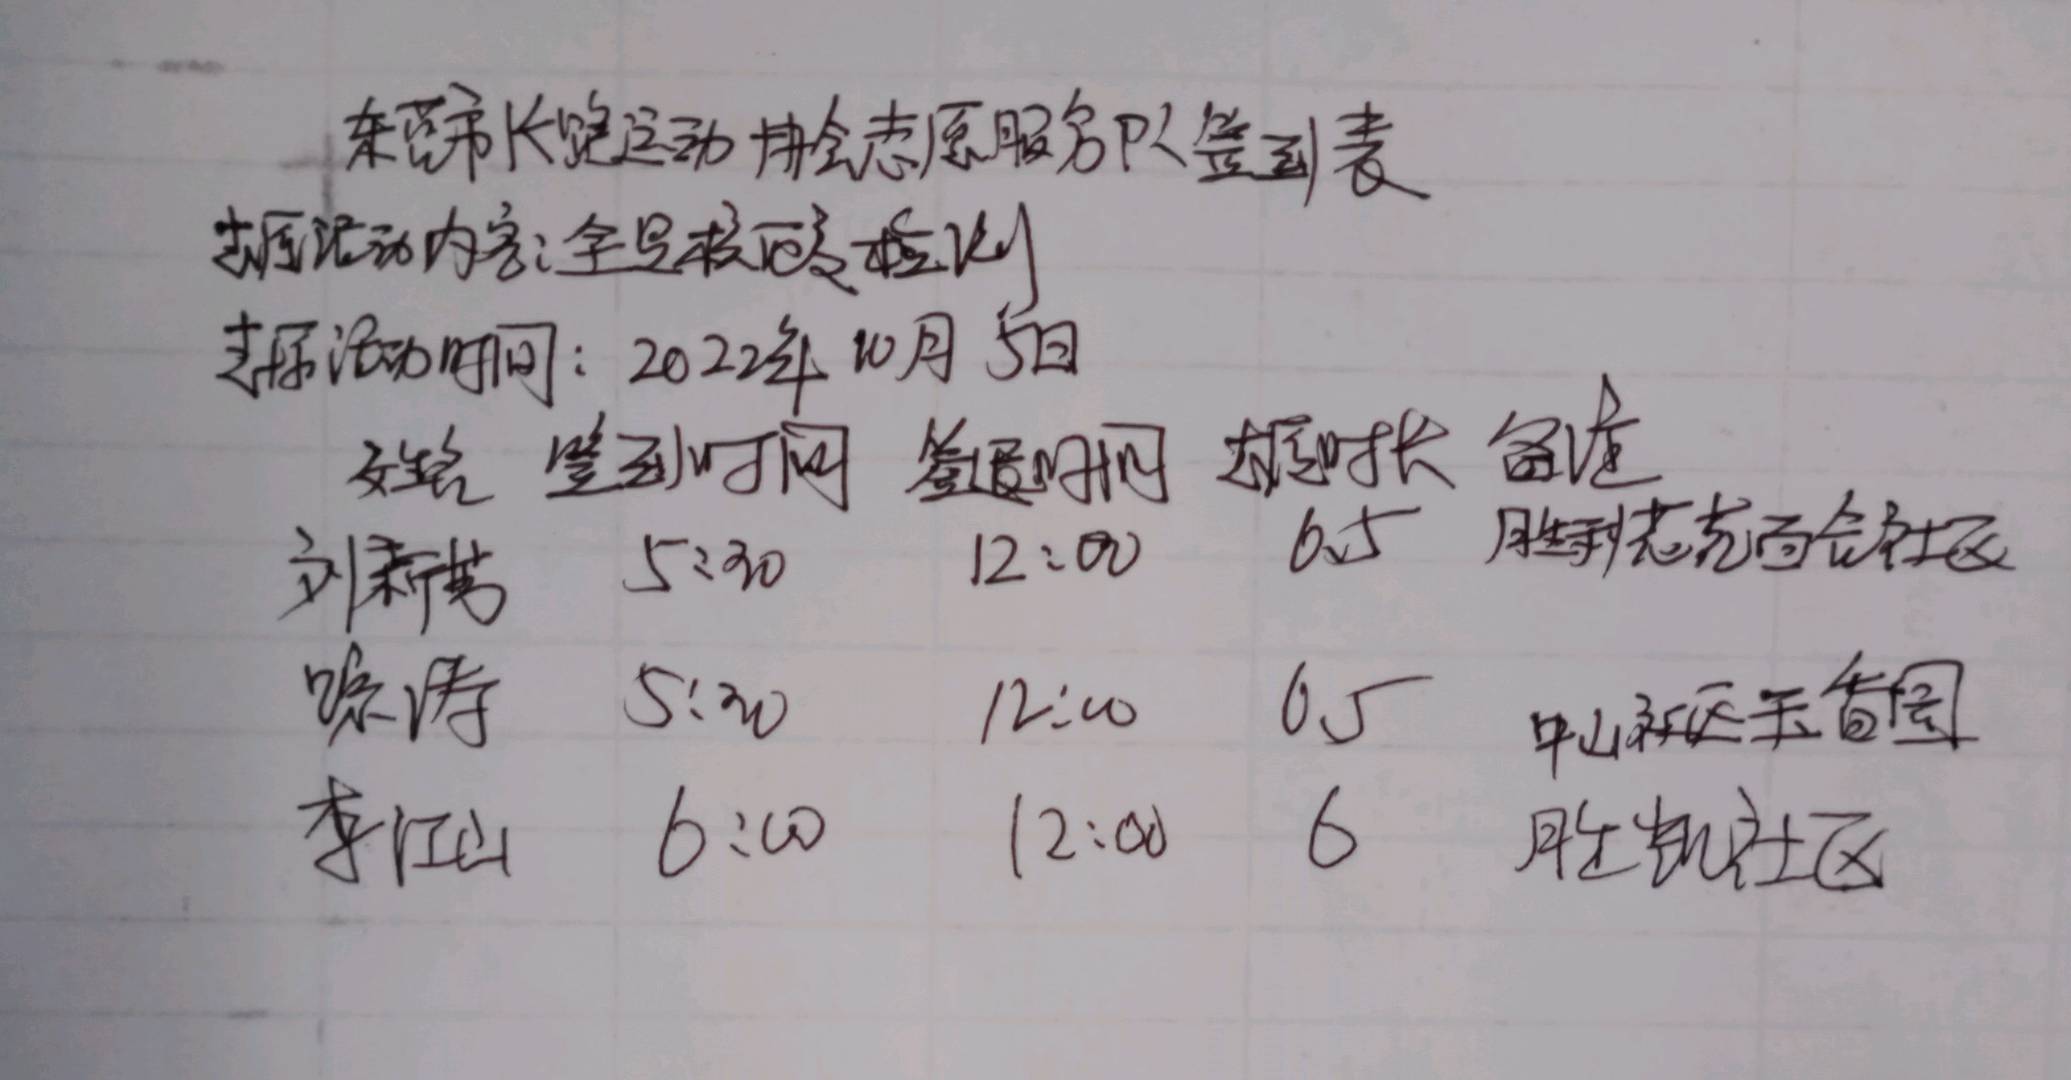 东营市长跑运动协会志愿服务队签到表
志愿活动内容：全员核酸检测
志愿活动时间：2022年10月5日
姓名 签到时间 签退时间 志愿时长 备注
刘新芳 5:30 12:00 6.5 胜利花苑百合社区
涛 5:30 12:00 6.5 中山社区
李江山 6:00 12:00 6 胜凯社区